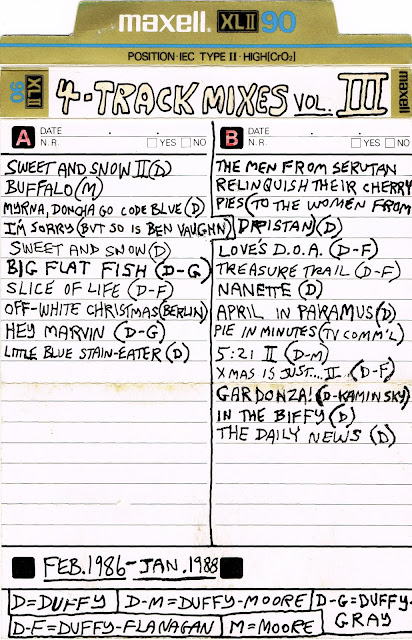 maxell. XLII 90
POSITION·IEC TYPE II·HIGH[CrO2]
XLII 90
4-TRACK MIXES VOL. III
maxell
A
DATE . .
N.R. YES NO
SWEET AND SNOW II (D)
BUFFALO (M)
MYRNA, DONCHA GO CODE BLUE (D)
I'M SORRY (BUT SO IS BEN VAUGHN)
SWEET AND SNOW (D)
BIG FLAT FISH (D-G)
SLICE OF LIFE (D-F)
OFF-WHITE CHRISTMAS (BERLIN)
HEY MARVIN (D-G)
LITTLE BLUE STAIN-EATER (D)
B
DATE . .
N.R. YES NO
THE MEN FROM SERUTAN
RELINQUISH THEIR CHERRY
PIES (TO THE WOMEN FROM
DRISTAN) (D)
LOVE'S D.O.A. (D-F)
TREASURE TRAIL (D-F)
NANETTE (D)
APRIL IN PARAMUS (D)
PIE IN MINUTES (TV COMM'L)
5:21 II (D-M)
XMAS IS JUST... II (D-F)
GARDONZA! (D-KAMINSKY)
IN THE BIFFY (D)
THE DAILY NEWS (D)
FEB. 1986-JAN. 1988
D=DUFFY D-M=DUFFY-MOORE D-G=DUFFY-GRAY
D-F=DUFFY-FLANAGAN M=MOORE